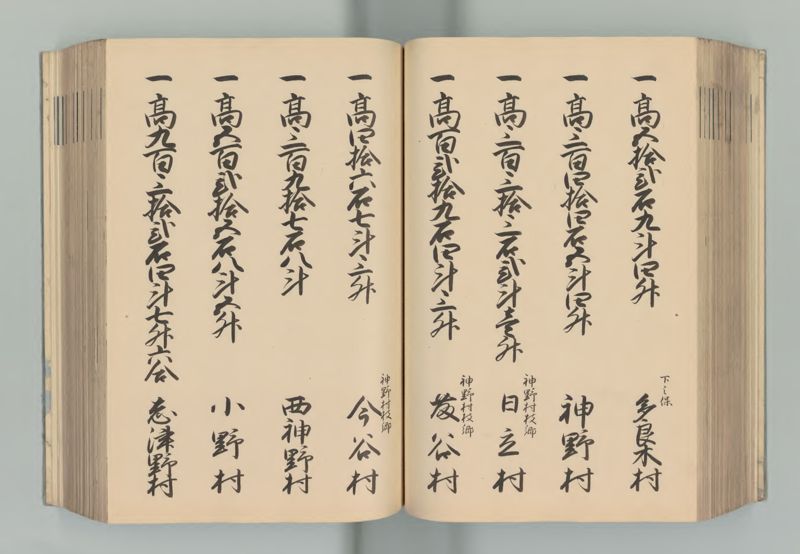 一 高五拾弐石九斗四升
下之保 多良木村
一 高三百四拾四石五斗四升
神野村
一 高三百三拾三石弐斗壱升
神野村枝郷 日立村
一 高百弐拾九石四斗三升
神野村枝郷 谷村
一 高四拾六石七斗三升
神野村枝郷 今谷村
一 高三百九拾七石八斗
西神野村
一 高五百弐拾五石八斗五升
小野村
一 高九百三拾弐石四斗七升六合
志津野村